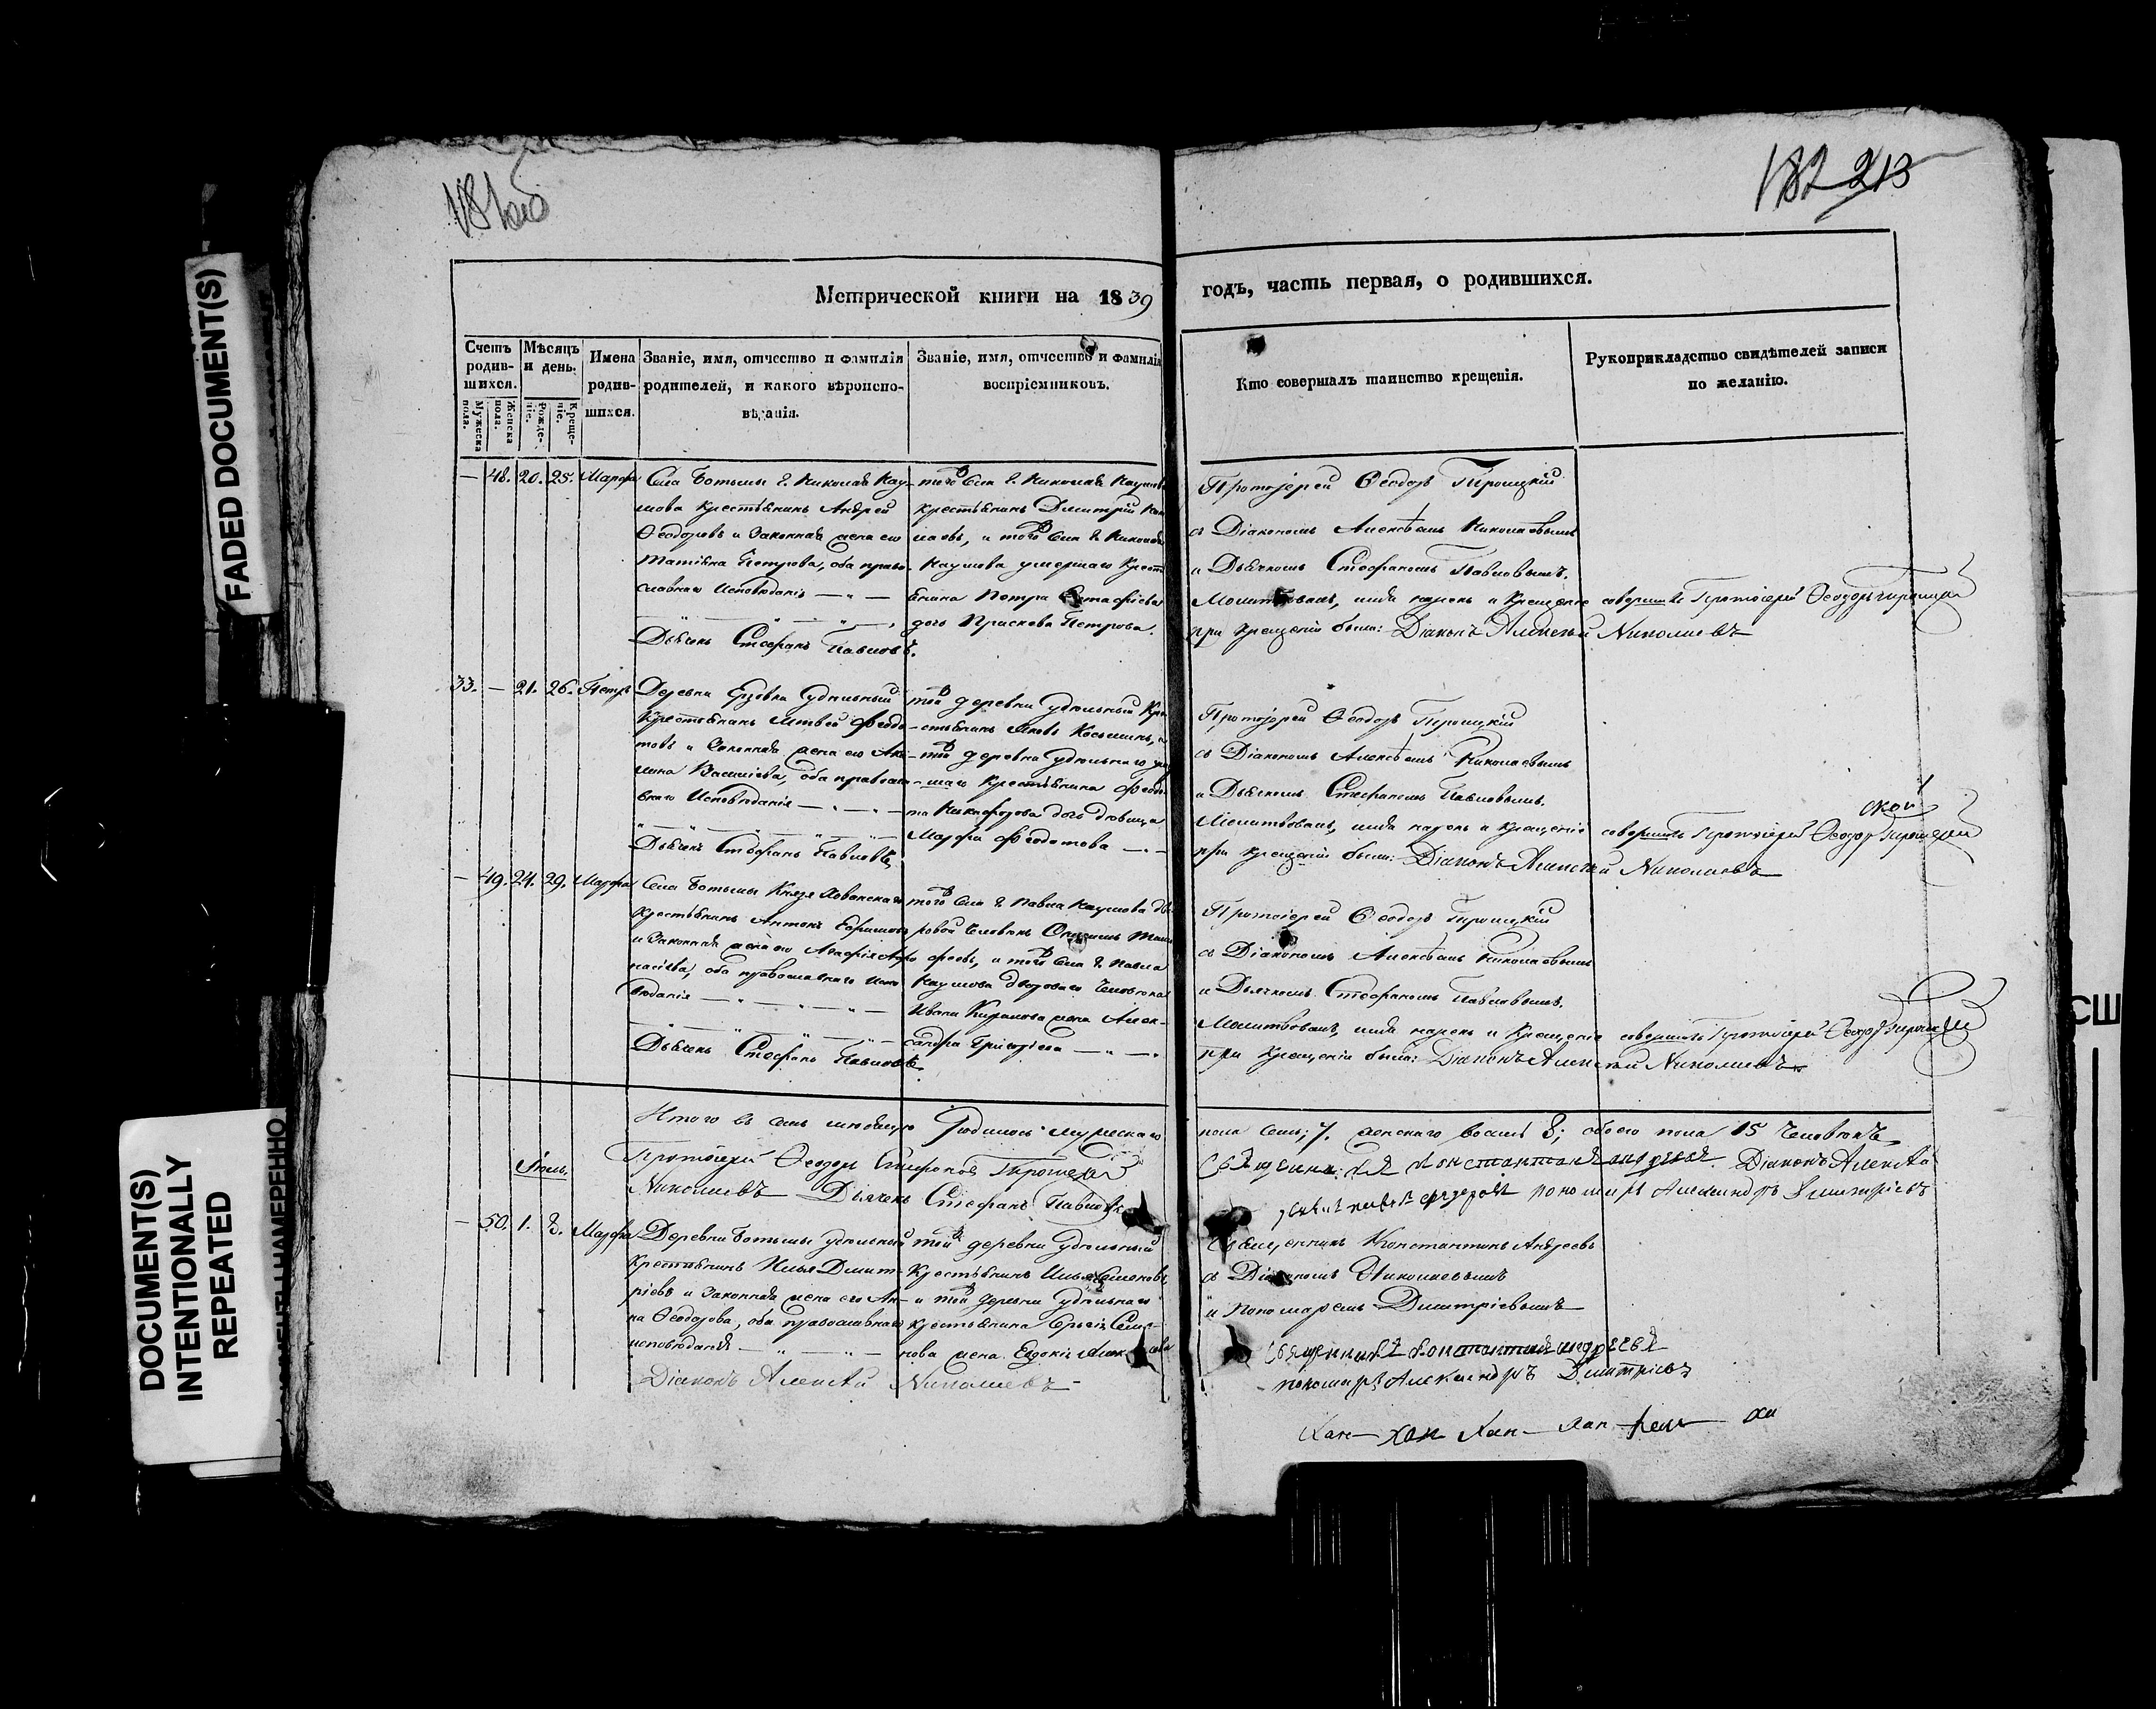 181об
182 213
FADED DOCUMENT(S)
DOCUMENT(S)
INTENTIONALLY
REPEATED
НАМЕРЕННО
СШ
Метрической книги на 1839
годъ, часть первая, о родившихся.
Счетъ родив-шихся.
Мужеска пола.
Женска пола.
Мѣсяцъ и день.
Рожде-ніе.
Креще-ніе.
Имена родив-шихся.
Званіе, имя, отчество и фамилія родителей, и какого вѣроиспо-вѣданія.
Званіе, имя, отчество и фамилія воспріемниковъ.
Кто совершалъ таинство крещенія.
Рукоприкладство свидѣтелей записи по желанію.
— 48. 20. 25. Марфа
Села Ботьмы г. Николая Нау-
мова крестьянинъ Андрей
Ѳеодоровъ и законная жена его
Татіяна Петрова, оба право-
славнаго исповѣданія
Дьячекъ Стефанъ Павловъ.
того села г. Николая Наумова
крестьянинъ Димитрій
и того села г. Николая
Наумова умершаго крест
янина Петра
дочь Праскева Петрова.
Протоіерей Ѳеодоръ Троицкій
съ Діакономъ Алексѣемъ Николаевымъ
и Дьячкомъ Стефаномъ Павловымъ.
Молитвовалъ, имя нарекъ и крещеніе совершилъ Протоіерей Ѳеодоръ Троицкій
при крещеніи были: Діаконъ Алексѣй Николаевъ
33. — 21. 26. Петръ
Деревни удѣльный
крестьянинъ Матвей Ѳедо-
товъ и законная жена его Аку-
лина Васильева, оба правосла-
внаго исповѣданія
Дьячекъ Стефанъ Павловъ
той деревни удѣльный кре-
стьянинъ Яковъ Косьминъ, и
той деревни удѣльнаго умер-
шаго крестьянина Ѳедо-
та Никифорова дочь дѣвица
Марфа Ѳедотова
Протоіерей Ѳеодоръ Троицкій
съ Діакономъ Алексѣемъ Николаевымъ
и Дьячкомъ Стефаномъ Павловымъ.
Молитвовалъ, имя нарекъ и крещеніе совершилъ Протоіерей Ѳеодоръ Троицкій
при крещеніи были: Діаконъ Алексѣй Николаевъ
— 49. 24. 29. Марфа
Села Ботьмы Князя Хованскаго
крестьянинъ Антонъ Ефимовъ
и законная жена его Агафія Аѳа-
насіева, оба православнаго испо-
вѣданія
Дьячекъ Стефанъ Павловъ
того села г. Павла Наумова дво-
ровой человѣкъ
и того села г. Павла
Наумова двороваго человѣка
Ивана Кирилова жена Алек-
сандра Григорьева
Протоіерей Ѳеодоръ Троицкій
съ Діакономъ Алексѣемъ Николаевымъ
и Дьячкомъ Стефаномъ Павловымъ.
Молитвовалъ, имя нарекъ и крещеніе совершилъ Протоіерей Ѳеодоръ Троицкій
при крещеніи были: Діаконъ Алексѣй Николаевъ
Итого въ семъ мѣсяцѣ родилось мужескаго
пола семь; 7. женскаго восемь 8; обоего пола 15 человѣкъ
Протоіерей Ѳеодоръ Троицкій
Священникъ Константинъ Андреевъ. Діаконъ Алексѣй
Николаевъ Дьячекъ Стефанъ Павловъ
пономарь Александръ Димитріевъ
Іюль.
— 50. 1. 2. Марфа
Деревни Ботьмы удѣльный
крестьянинъ Илья Димит-
ріевъ и законная жена его Ан-
на Ѳеодорова, оба православнаго
исповѣданія
Діаконъ Алексѣй Николаевъ
той деревни удѣльный
крестьянинъ Илья Семеновъ
и той деревни удѣльнаго
крестьянина Сергія Семе-
нова жена Евдокія
Священникъ Константинъ Андреевъ
съ Діакономъ Николаевымъ
и Пономаремъ Димитріевымъ
Священникъ Константинъ Андреевъ
пономарь Александръ Димитріевъ